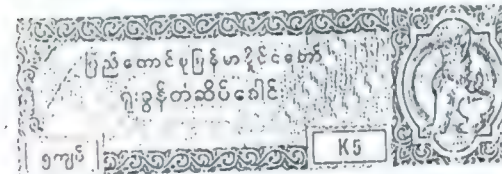 ပြည်ထောင်စုမြန်မာနိုင်ငံတော်
ရုံးခွန်တံဆိပ်ခေါင်း
၅ကျပ်
K5